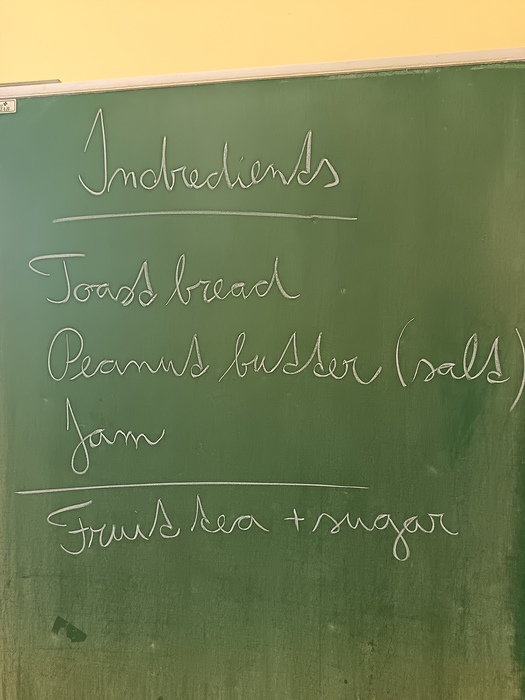 Indredients
Toast bread
Peanut butter (salt)
Jam
Fruit tea + sugar